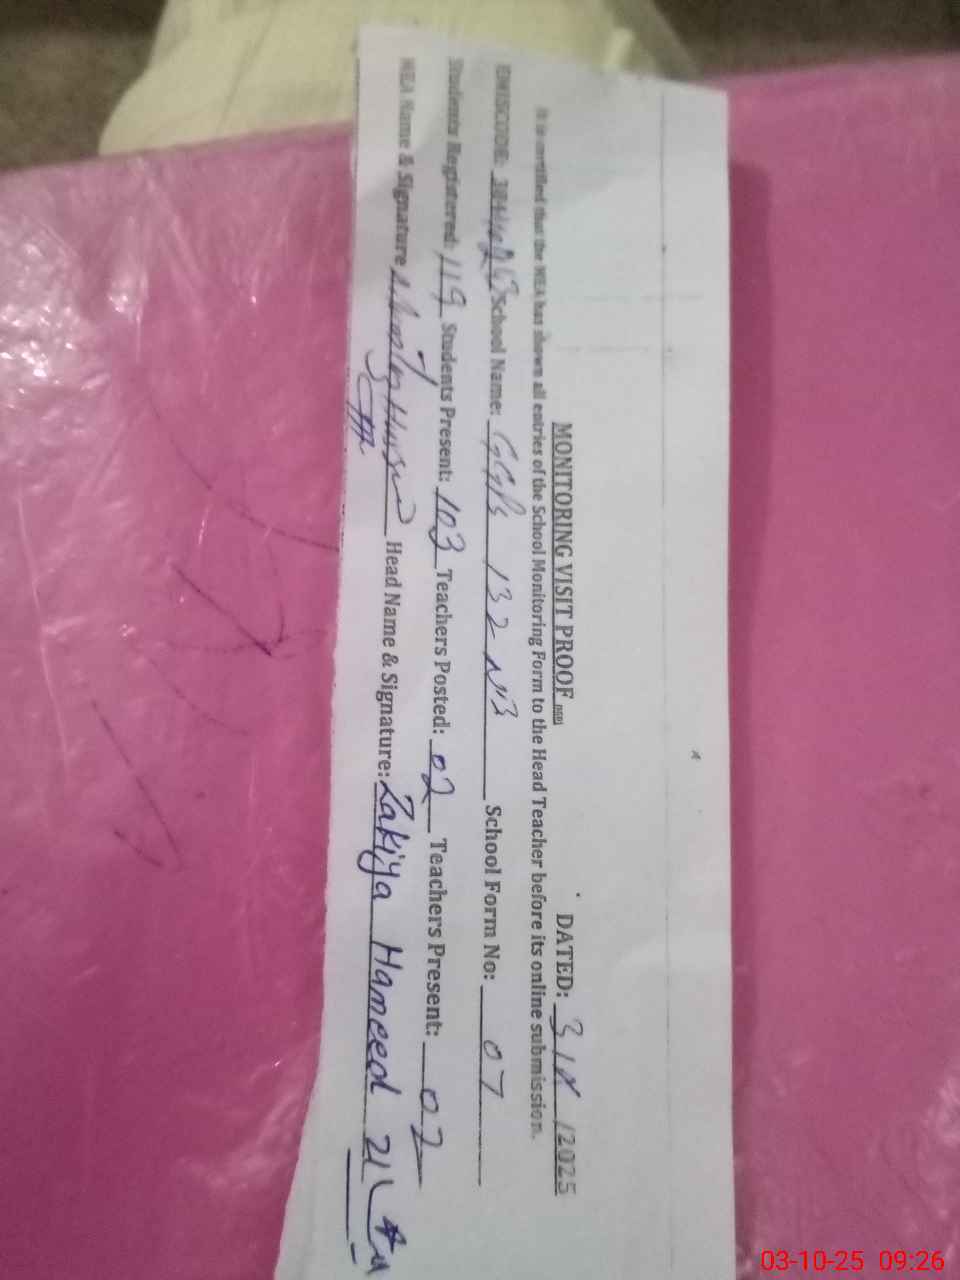 MONITORING VISIT PROOF DATED: 3 / X / 2025
It is certified that the MEA has shown all entries of the School Monitoring Form to the Head Teacher before its online submission.
EMISCODE: School Name: GGPS 132 NB School Form No: 07
Students Registered: 119 Students Present: 103 Teachers Posted: 02 Teachers Present: 02
MEA Name & Signature Head Name & Signature: Zakiya Hameed
03-10-25 09:26